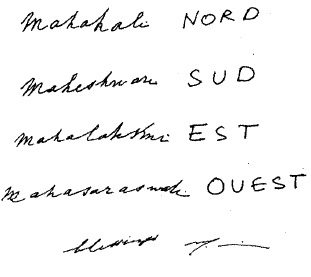 Mahakali NORD
Maheshwari SUD
Mahalakshmi EST
Mahasaraswati OUEST
blessings